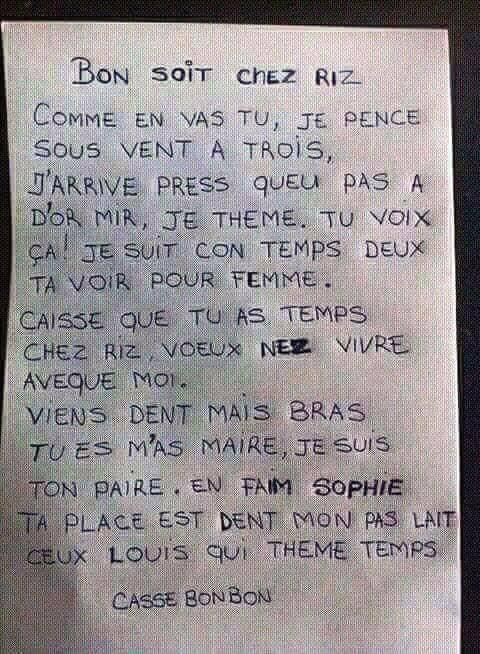 BON SOIT CHEZ RIZ
COMME EN VAS TU, JE PENCE
SOUS VENT A TROIS,
J'ARRIVE PRESS QUEU PAS A
D'OR MIR, JE THEME. TU VOIX
ÇA! JE SUIT CON TEMPS DEUX
TA VOIR POUR FEMME.
CAISSE QUE TU AS TEMPS
CHEZ RIZ, VOEUX NEZ VIVRE
AVEQUE MOI.
VIENS DENT MAIS BRAS
TU ES M'AS MAIRE, JE SUIS
TON PAIRE. EN FAIM SOPHIE
TA PLACE EST DENT MON PAS LAIT
CEUX LOUIS QUI THEME TEMPS
CASSE BONBON